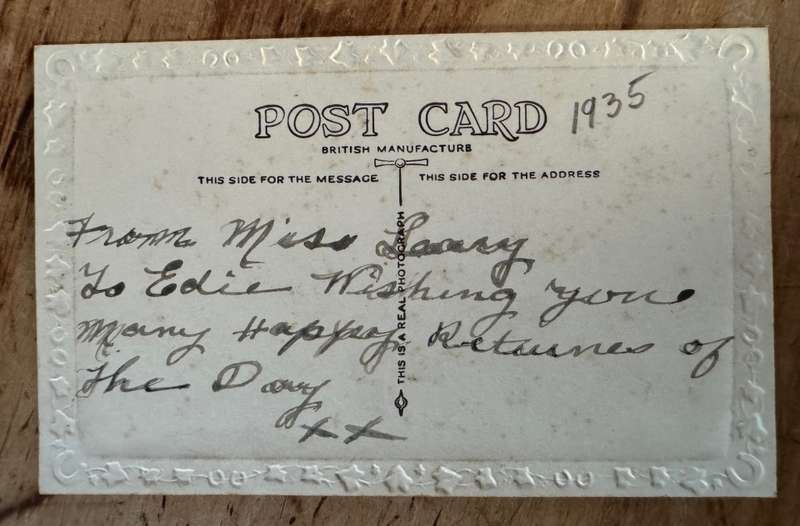 POST CARD 1935
BRITISH MANUFACTURE
THIS SIDE FOR THE MESSAGE THIS SIDE FOR THE ADDRESS
THIS IS A REAL PHOTOGRAPH
From Miss
To Edie Wishing you
Many Happy Returnes of
the Day
xx